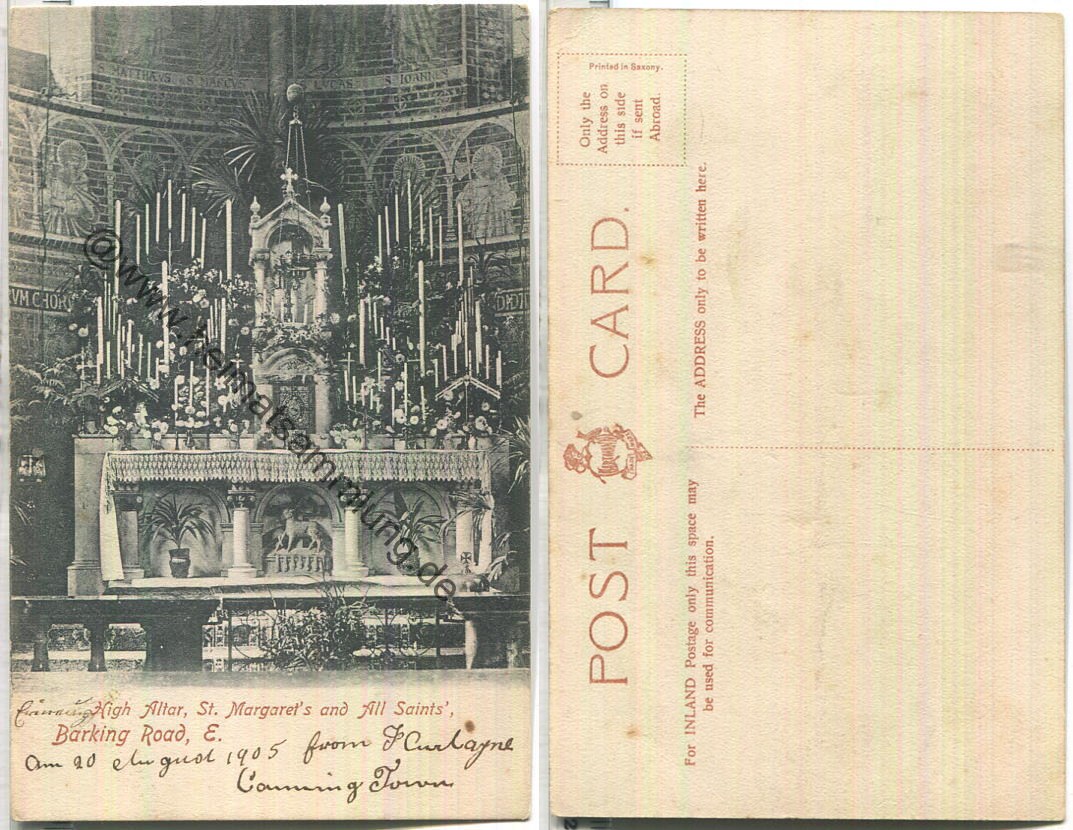 S. MATTHÆUS
LUCAS
S. IOANNES
VM CHORV
DIDIT
@www.heimatsammlung.de
High Altar, St. Margaret's and All Saints',
Barking Road, E.
am 20 August 1905 from
Canning Town
Printed in Saxony.
Only the
Address on
this side
if sent
Abroad.
POST CARD.
For INLAND Postage only this space may
be used for communication.
The ADDRESS only to be written here.